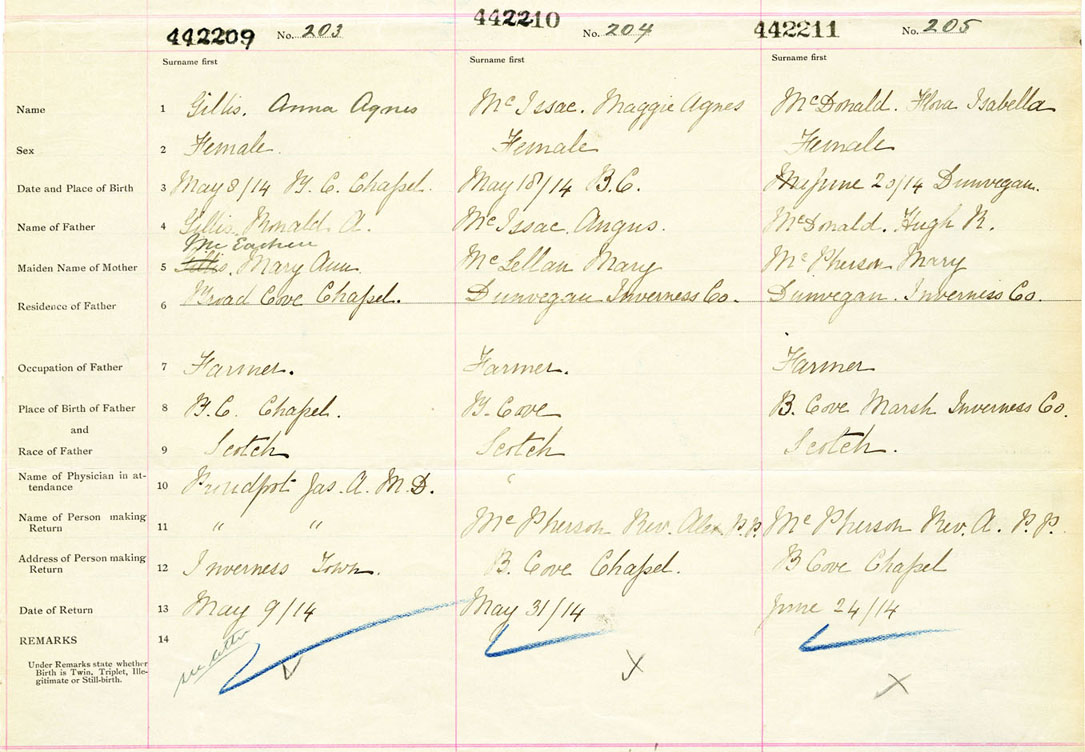 442209 No. 203 442210 No. 204 442211 No. 205
Surname first Surname first Surname first
Name 1 Gillis. Anna Agnes McIssac. Maggie Agnes McDonald. Flora Isabella
Sex 2 Female. Female Female
Date and Place of Birth 3 May 8/14 B. C. Chapel. May 18/14 B.C. June 20/14 Dunvegan.
Name of Father 4 Gillis. Ronald A. McIssac. Angus. McDonald. Hugh R.
McEachen
Maiden Name of Mother 5 Gillis, Mary Ann. McLellan Mary McPherson Mary
Residence of Father 6 Broad Cove Chapel. Dunvegan Inverness Co. Dunvegan. Inverness Co.
Occupation of Father 7 Farmer. Farmer. Farmer
Place of Birth of Father 8 B.C. Chapel. B. Cove B. Cove Marsh Inverness Co.
and
Race of Father 9 Scotch Scotch Scotch.
Name of Physician in at-
tendance 10 Jas. A. M.D.
Name of Person making
Return 11 " " McPherson Rev. Alex P.P. McPherson Rev. A. P.P.
Address of Person making
Return 12 Inverness Town. B. Cove Chapel. B Cove Chapel
Date of Return 13 May 9/14 May 31/14 June 24/14
REMARKS 14
Under Remarks state whether
Birth is Twin, Triplet, Ille-
gitimate or Still-birth.